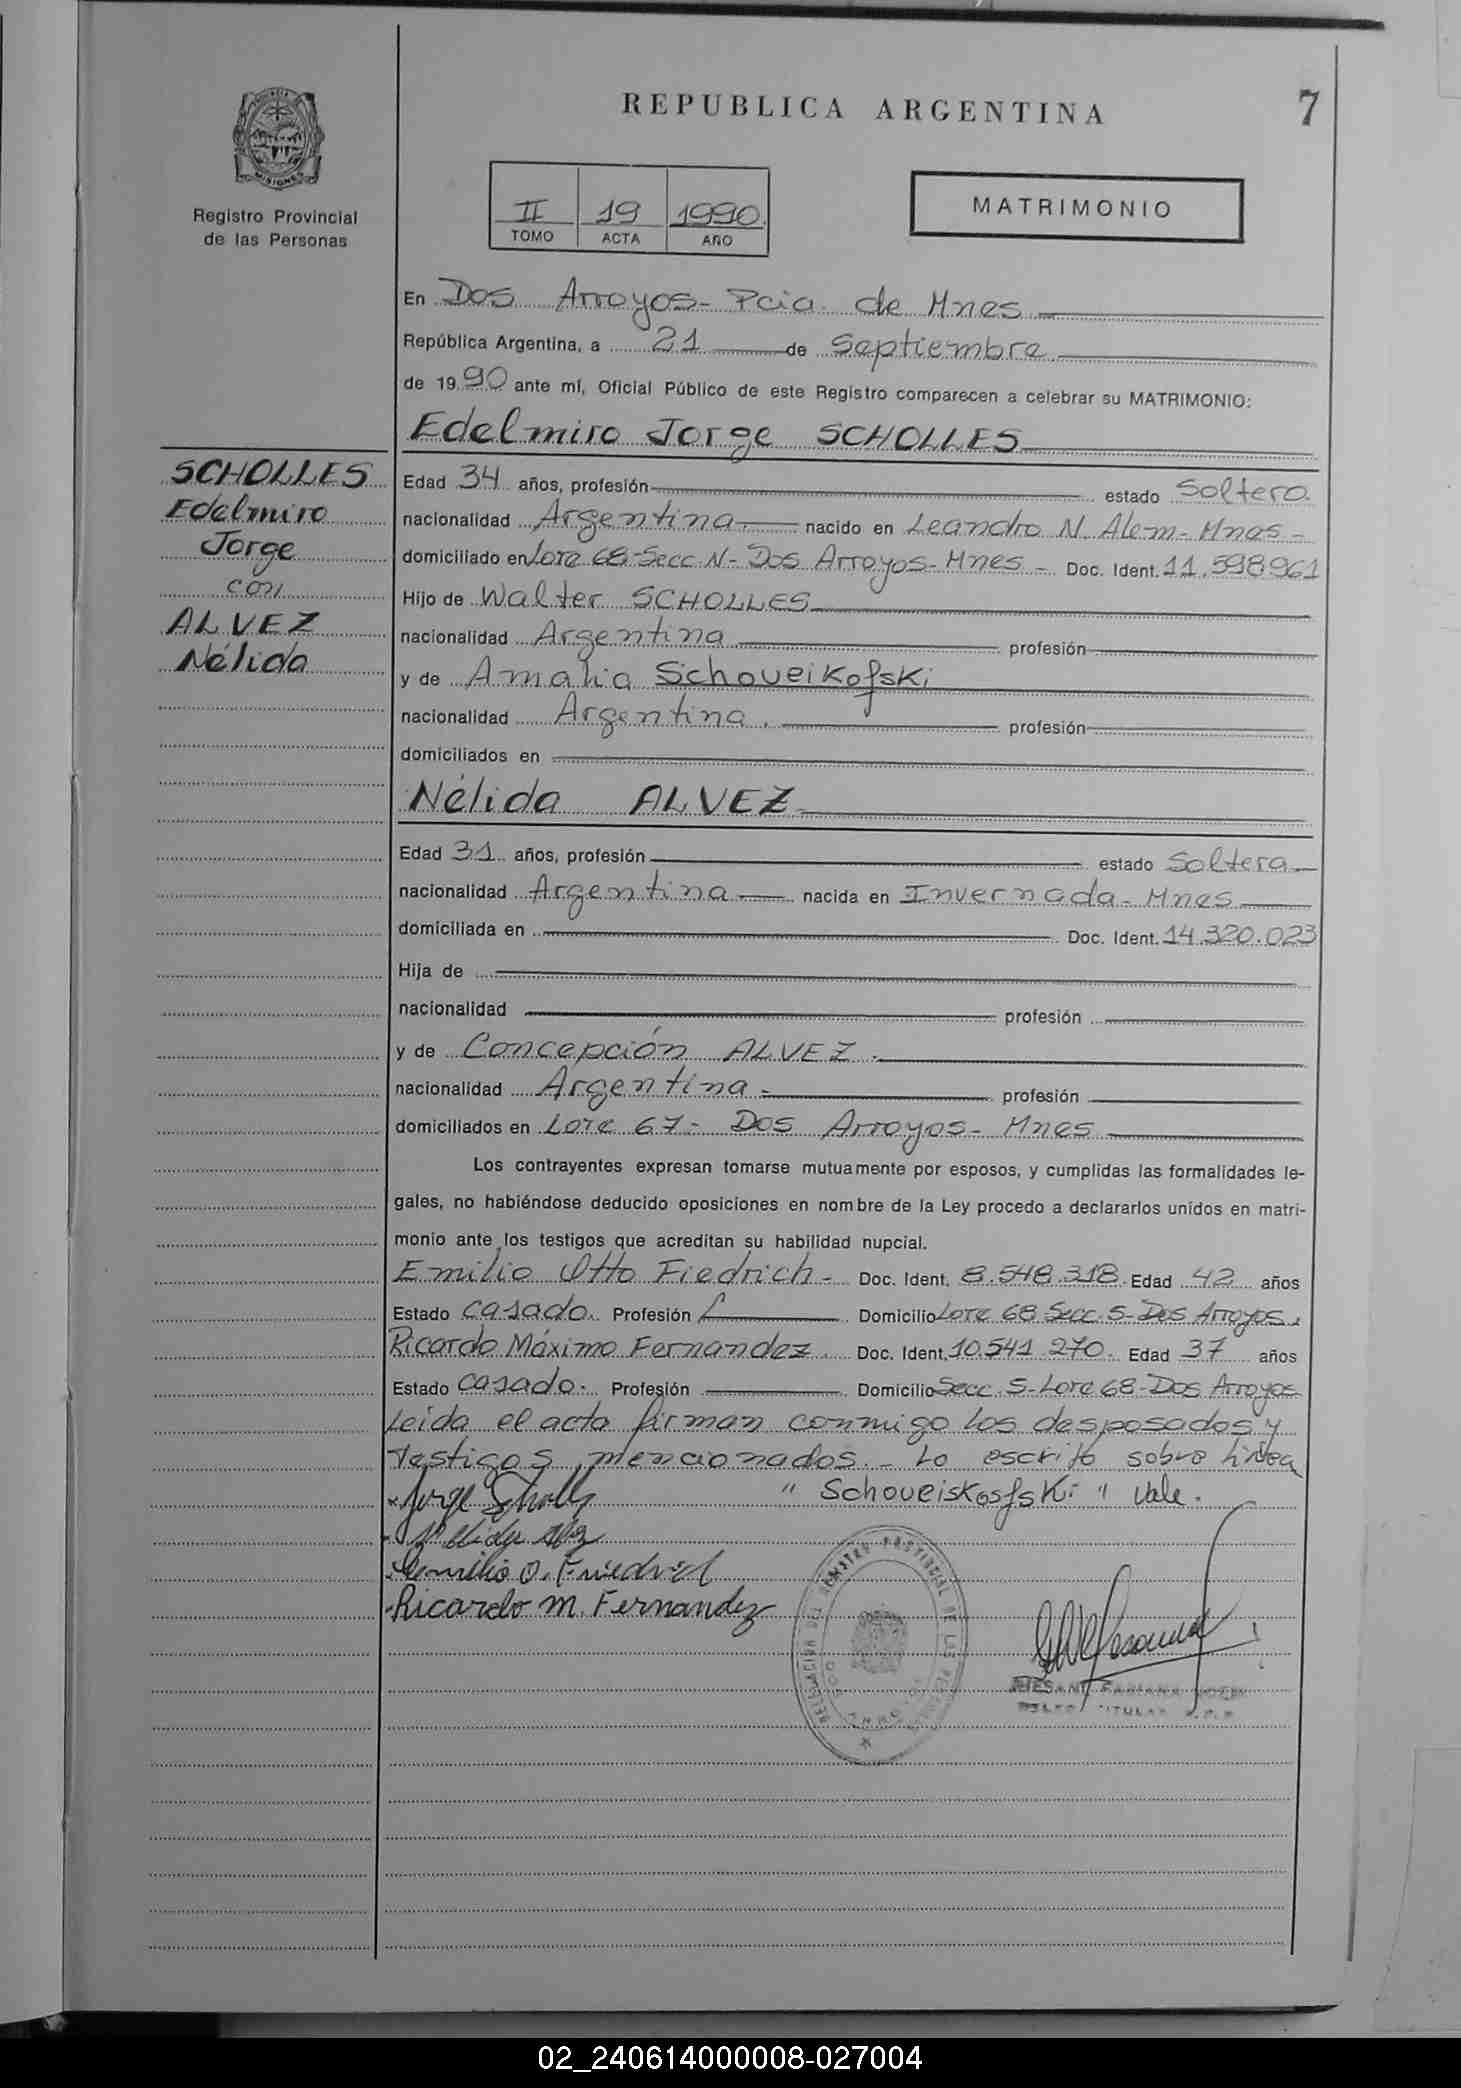 REPUBLICA ARGENTINA
7
MISIONES
Registro Provincial
de las Personas
II 19 1990
TOMO ACTA AÑO
MATRIMONIO
En Dos Arroyos- Pcia. de Mnes
República Argentina, a 21 de Septiembre
de 1990 ante mí, Oficial Público de este Registro comparecen a celebrar su MATRIMONIO:
Edelmiro Jorge SCHOLLES
SCHOLLES
Edelmiro
Jorge
con
ALVEZ
Nélida
Edad 34 años, profesión estado Soltero
nacionalidad Argentina. nacido en Leandro N. Alem- Mnes-
domiciliado en Lote 68-Secc. N- Dos Arroyos- Mnes- Doc. Ident. 11.598961
Hijo de Walter SCHOLLES
nacionalidad Argentina profesión
y de Amalia Schoveikofski
nacionalidad Argentina. profesión
domiciliados en
Nélida ALVEZ
Edad 31 años, profesión estado Soltera
nacionalidad Argentina nacida en Invernada- Mnes
domiciliada en Doc. Ident. 14.320.023
Hija de
nacionalidad profesión
y de Concepción ALVEZ.
nacionalidad Argentina- profesión
domiciliados en Lote 67- Dos Arroyos- Mnes
Los contrayentes expresan tomarse mutuamente por esposos, y cumplidas las formalidades le-
gales, no habiéndose deducido oposiciones en nombre de la Ley procedo a declararlos unidos en matri-
monio ante los testigos que acreditan su habilidad nupcial.
Emilio Otto Fiedrich- Doc. Ident. 8.548.318. Edad 42 años
Estado casado. Profesión Domicilio Lote 68 Secc. S- Dos Arroyos.
Ricardo Máximo Fernandez. Doc. Ident. 10.541.270. Edad 37 años
Estado casado. Profesión Domicilio Secc. S- Lote 68- Dos Arroyos
Leida el acta firman conmigo los desposados y
testigos mencionados.- Lo escrito sobre linea
"Schoveiskosfski" Vale.
Jorge Scholls
Nelida Alvez
Emilio O. Friedrich
Ricardo M. Fernandez
DELEGACION DEL REGISTRO PROVINCIAL DE LAS PERSONAS
DOS ARROYOS
FABIANA
TITULAR
02_240614000008-027004